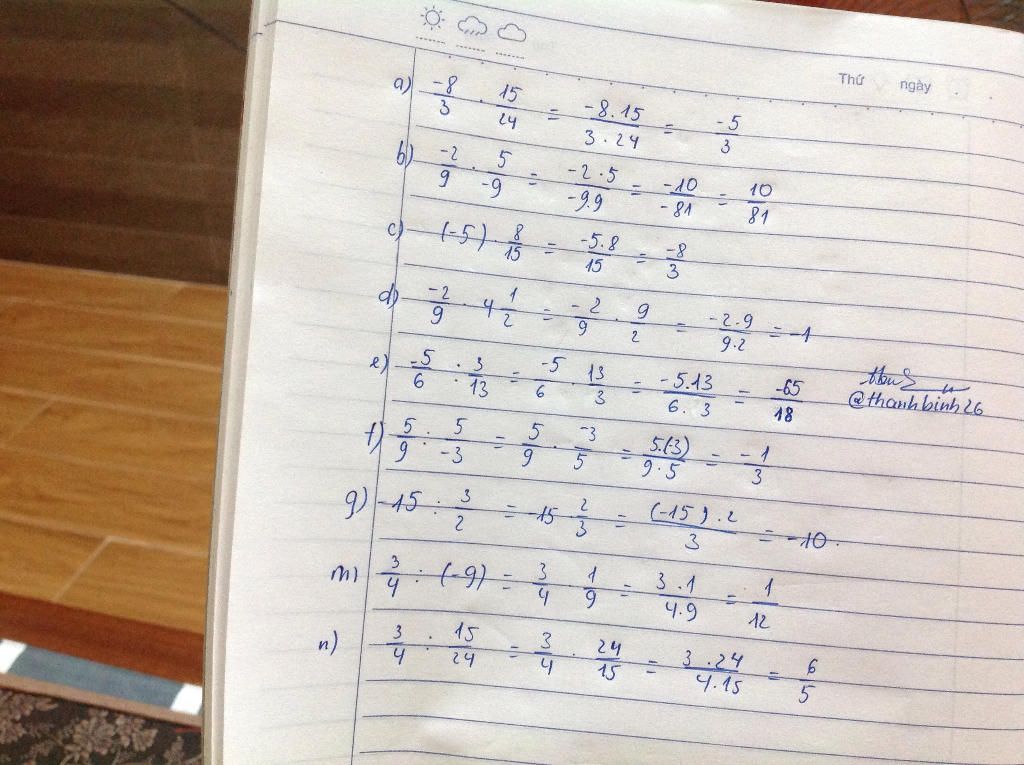 Thứ ngày
a) -8/3 . 15/24 = -8.15/3.24 = -5/3
b) -2/9 . 5/-9 = -2.5/-9.9 = -10/-81 = 10/81
c) (-5) . 8/15 = -5.8/15 = -8/3
d) -2/9 . 4 1/2 = -2/9 . 9/2 = -2.9/9.2 = -1
e) -5/6 : 3/13 = -5/6 . 13/3 = -5.13/6.3 = -65/18
@thanhbinh26
f) 5/9 : 5/-3 = 5/9 . -3/5 = 5.(3)/9.5 = -1/3
g) -15 : 3/2 = -15 . 2/3 = (-15).2/3 = -10.
m) 3/4 : (-9) = 3/4 . 1/9 = 3.1/4.9 = 1/12
n) 3/4 : 15/24 = 3/4 . 24/15 = 3.24/4.15 = 6/5